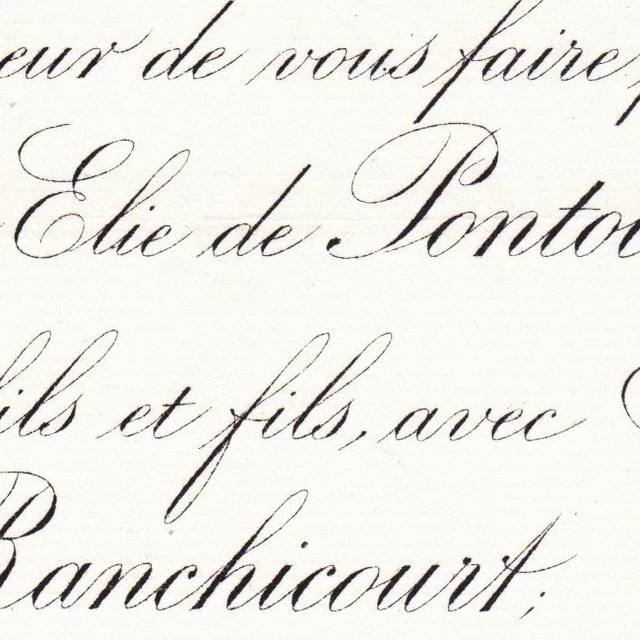 eur de vous faire
Elie de Pontou
fils et fils, avec
Ranchicourt;